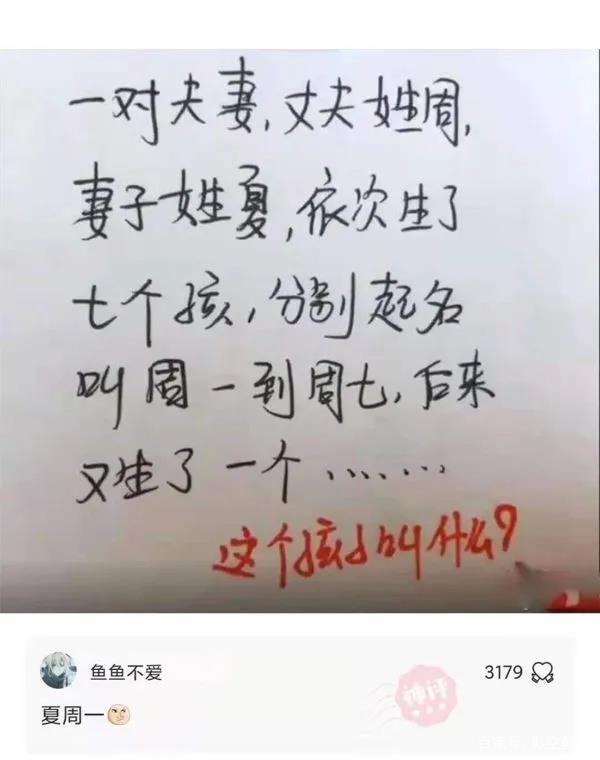 一对夫妻，丈夫姓周，
妻子姓夏，依次生了
七个孩，分别起名
叫周一到周七，后来
又生了一个……
这个孩子叫什么？
鱼鱼不爱
神评
3179
夏周一